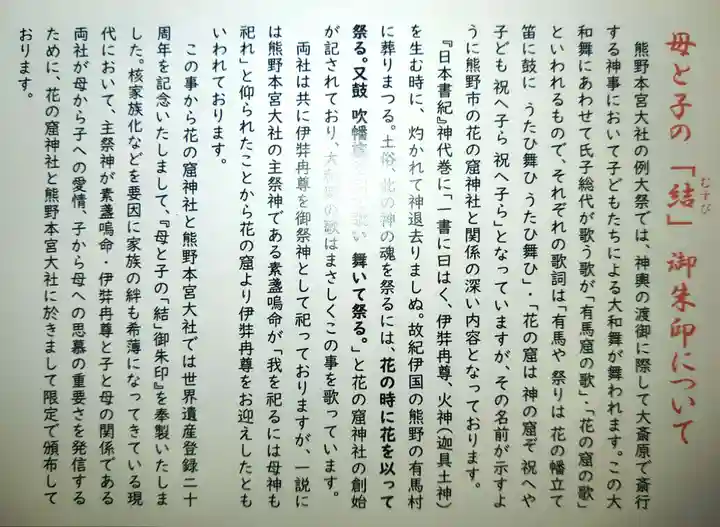 母と子の「結」御朱印について
むすび
熊野本宮大社の例大祭では、神輿の渡御に際して大斎原で斎行
する神事において子どもたちによる大和舞が舞われます。この大
和舞にあわせて氏子総代が歌う歌が「有馬窟の歌」・「花の窟の歌」
といわれるもので、それぞれの歌詞は「有馬や 祭りは 花の幡立て
笛に鼓に うたひ舞ひ うたひ舞ひ」・「花の窟は 神の窟ぞ 祝へや
子ども 祝へ子ら 祝へ子ら」となっていますが、その名前が示すよ
うに熊野市の花の窟神社と関係の深い内容となっております。
『日本書紀』神代巻に「一書に曰はく、伊弉冉尊、火神(迦具土神)
を生む時に、灼かれて神退去りましぬ。故紀伊国の熊野の有馬村
に葬りまつる。土俗、此の神の魂を祭るには、花の時に花を以って
祭る。又鼓 吹幡 い 舞いて祭る。」と花の窟神社の創始
が記されており、 の歌はまさしくこの事を歌っています。
両社は共に伊弉冉尊を御祭神として祀っておりますが、一説に
は熊野本宮大社の主祭神である素盞嗚命が「我を祀るには母神も
祀れ」と仰られたことから花の窟より伊弉冉尊をお迎えしたとも
いわれております。
この事から花の窟神社と熊野本宮大社では世界遺産登録二十
周年を記念いたしまして、『母と子の「結」御朱印』を奉製いたしま
した。核家族化などを要因に家族の絆も希薄になってきている現
代において、主祭神が素盞嗚命・伊弉冉尊と子と母の関係である
両社が母から子への愛情、子から母への思慕の重要さを発信する
ために、花の窟神社と熊野本宮大社に於きまして限定で頒布して
おります。